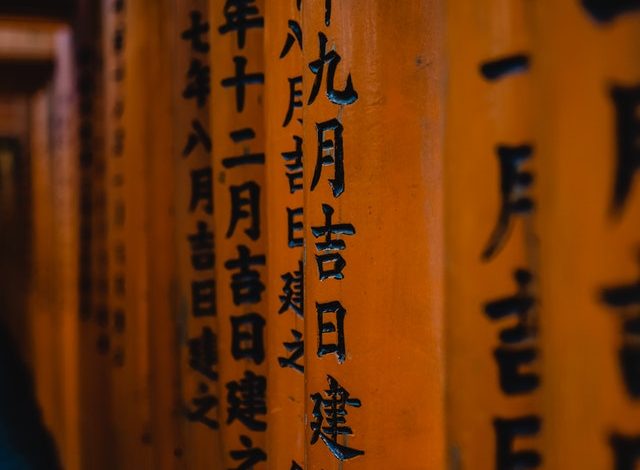 月吉
一月吉日
九月吉日建
八月吉日建之
年十二月吉日建之
七年八月吉日建之